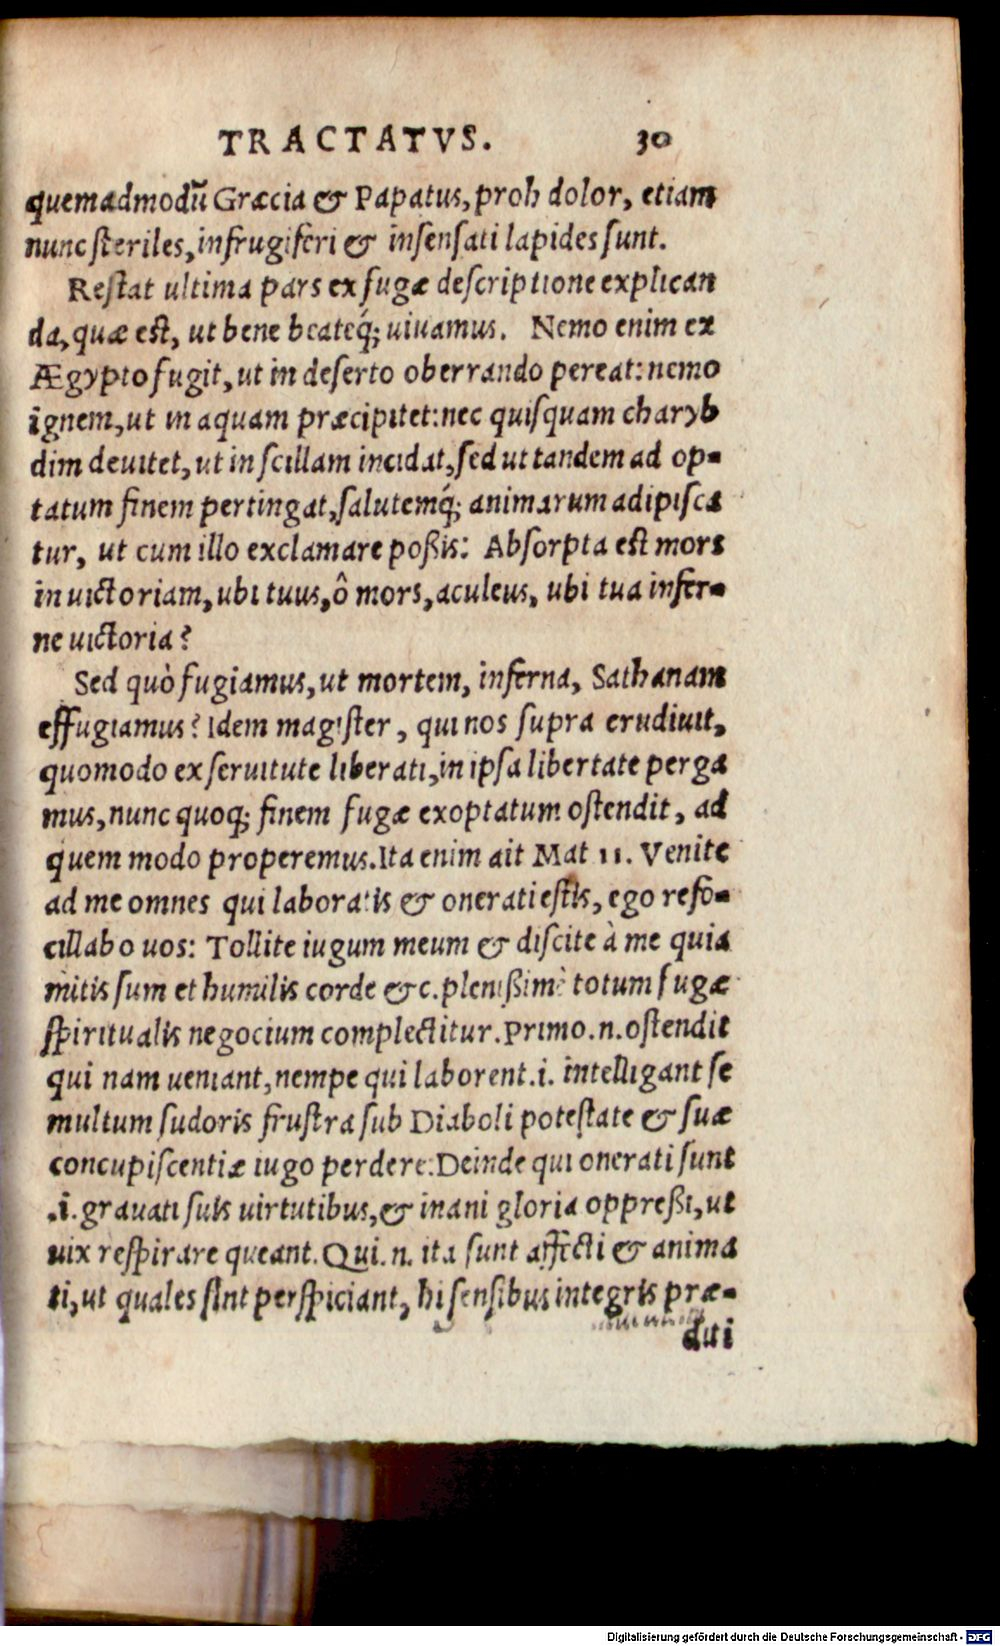 TRACTATVS. 30
quemadmodũ Græcia & Papatus, proh dolor, etiam
nunc steriles, infrugiferi & insensati lapides sunt.
Restat ultima pars ex fugæ descriptione explican
da, quæ est, ut bene beateq́; uiuamus. Nemo enim ex
Ægypto fugit, ut in deserto oberrando pereat: nemo
ignem, ut in aquam præcipitet: nec quisquam charyb
dim deuitet, ut in scillam incidat, sed ut tandem ad op-
tatum finem pertingat, salutemq́; animarum adipisca
tur, ut cum illo exclamare poßis: Absorpta est mors
in uictoriam, ubi tuus, ô mors, aculeus, ubi tua infer-
ne uictoria?
Sed quò fugiamus, ut mortem, inferna, Sathanam
effugiamus? Idem magister, qui nos supra erudiuit,
quomodo ex seruitute liberati, in ipsa libertate perga
mus, nunc quoq; finem fugæ exoptatum ostendit, ad
quem modo properemus. Ita enim ait Mat 11. Venite
ad me omnes qui laboratis & onerati estis, ego refo-
cillabo uos: Tollite iugum meum & discite à me quia
mitis sum et humilis corde &c. plenißimè totum fugæ
spiritualis negocium complectitur. Primo .n. ostendit
qui nam ueniant, nempe qui laborent .i. intelligant se
multum sudoris frustra sub Diaboli potestate & suæ
concupiscentiæ iugo perdere: Deinde qui onerati sunt
.i. grauati suis uirtutibus, & inani gloria oppreßi, ut
uix respirare queant. Qui .n. ita sunt affecti & anima
ti, ut quales sint perspiciant, hi sensibus integris præ-
diti
Digitalisierung gefördert durch die Deutsche Forschungsgemeinschaft - DFG